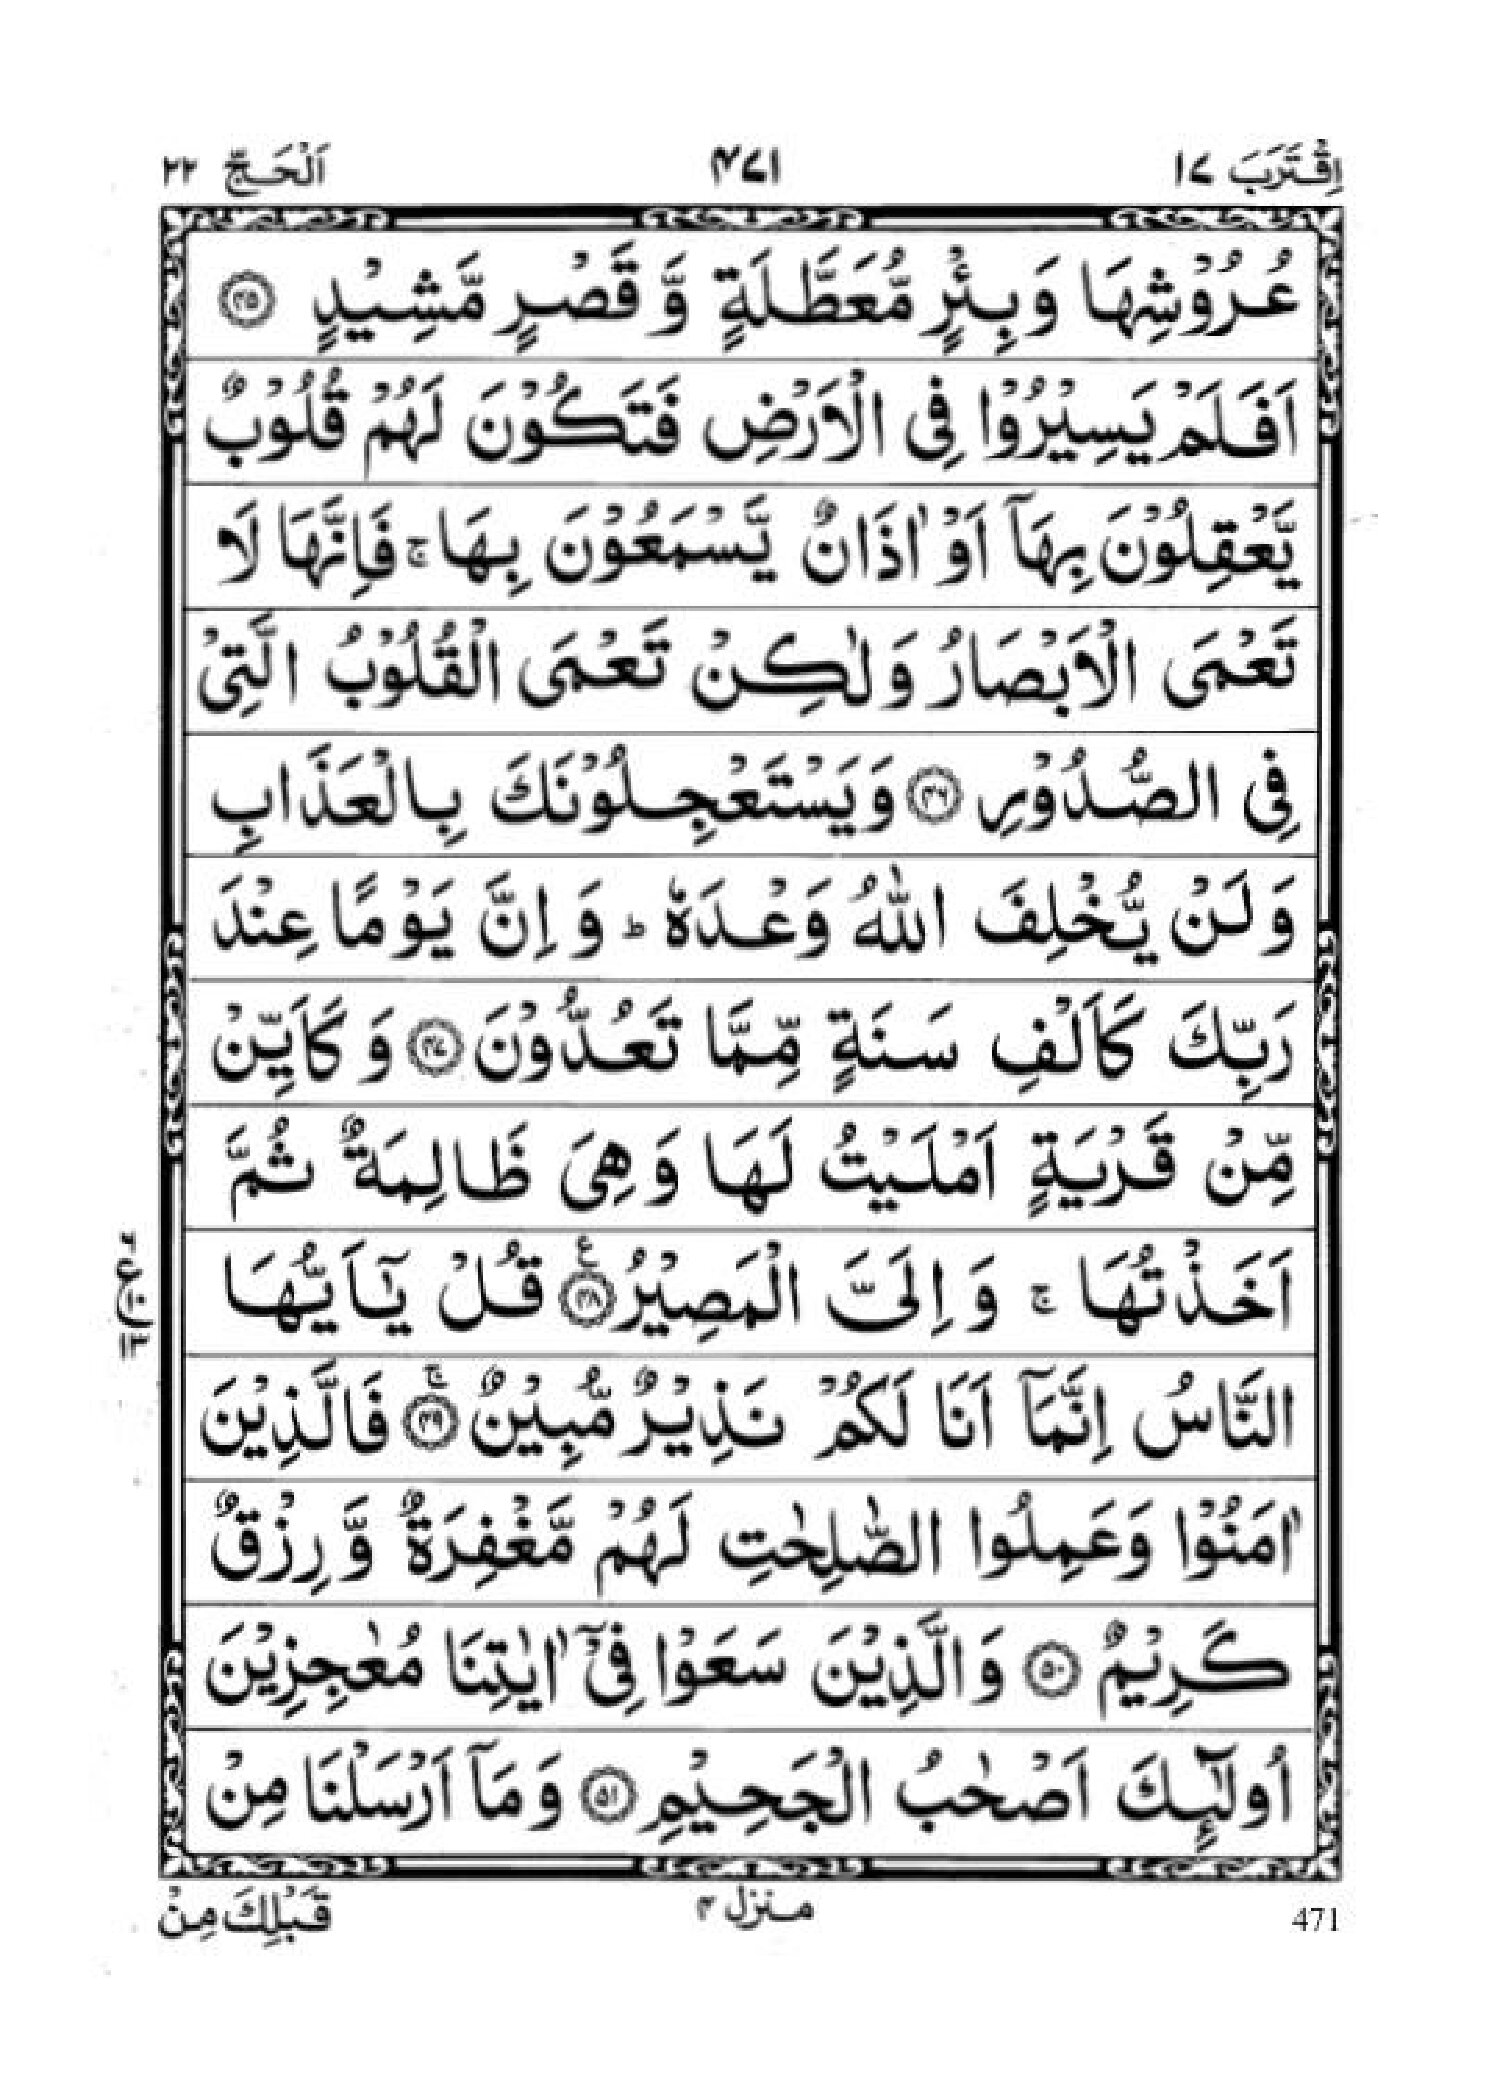 اِقْتَرَبَ ١٧ ٤٧١ اَلْحَـجّ ٢٢
عُرُوْشِهَا وَبِئْرٍ مُّعَطَّلَةٍ وَّ قَصْرٍ مَّشِيْدٍ ۝٤٥
اَفَلَمْ يَسِيْرُوْا فِي الْاَرْضِ فَتَكُوْنَ لَهُمْ قُلُوْبٌ
يَّعْقِلُوْنَ بِهَآ اَوْ اٰذَانٌ يَّسْمَعُوْنَ بِهَا ۚ فَاِنَّهَا لَا
تَعْمَى الْاَبْصَارُ وَلٰكِنْ تَعْمَى الْقُلُوْبُ الَّتِيْ
فِي الصُّدُوْرِ ۝٤٦ وَيَسْتَعْجِلُوْنَكَ بِالْعَذَابِ
وَلَنْ يُّخْلِفَ اللّٰهُ وَعْدَهٗ ؕ وَ اِنَّ يَوْمًا عِنْدَ
رَبِّكَ كَاَلْفِ سَنَةٍ مِّمَّا تَعُدُّوْنَ ۝٤٧ وَ كَاَيِّنْ
مِّنْ قَرْيَةٍ اَمْلَيْتُ لَهَا وَهِيَ ظَالِمَةٌ ثُمَّ
اَخَذْتُهَا ۚ وَ اِلَيَّ الْمَصِيْرُ ۝٤٨ ع قُلْ يٰٓاَيُّهَا
النَّاسُ اِنَّمَآ اَنَا لَكُمْ نَذِيْرٌ مُّبِيْنٌ ۝٤٩ ۚ فَالَّذِيْنَ
اٰمَنُوْا وَعَمِلُوا الصّٰلِحٰتِ لَهُمْ مَّغْفِرَةٌ وَّ رِزْقٌ
كَرِيْمٌ ۝٥٠ وَالَّذِيْنَ سَعَوْا فِيْٓ اٰيٰتِنَا مُعٰجِزِيْنَ
اُولٰٓئِكَ اَصْحٰبُ الْجَحِيْمِ ۝٥١ وَمَآ اَرْسَلْنَا مِنْ
471 منزل ٤ قَبْلِكَ مِنْ